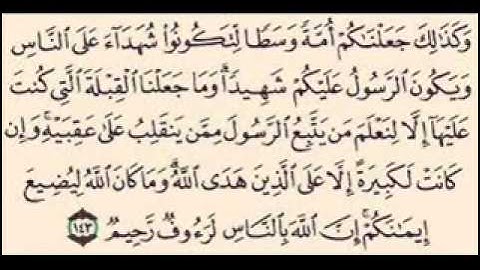 وَكَذَٰلِكَ جَعَلْنَاكُمْ أُمَّةً وَسَطًا لِّتَكُونُوا۟ شُهَدَآءَ عَلَى النَّاسِ
وَيَكُونَ الرَّسُولُ عَلَيْكُمْ شَهِيدًا ۗ وَمَا جَعَلْنَا الْقِبْلَةَ الَّتِي كُنتَ
عَلَيْهَآ إِلَّا لِنَعْلَمَ مَن يَتَّبِعُ الرَّسُولَ مِمَّن يَنقَلِبُ عَلَىٰ عَقِبَيْهِ ۚ وَإِن
كَانَتْ لَكَبِيرَةً إِلَّا عَلَى الَّذِينَ هَدَى اللَّهُ ۗ وَمَا كَانَ اللَّهُ لِيُضِيعَ
إِيمَانَكُمْ ۚ إِنَّ اللَّهَ بِالنَّاسِ لَرَءُوفٌ رَّحِيمٌ ﴿١٤٣﴾